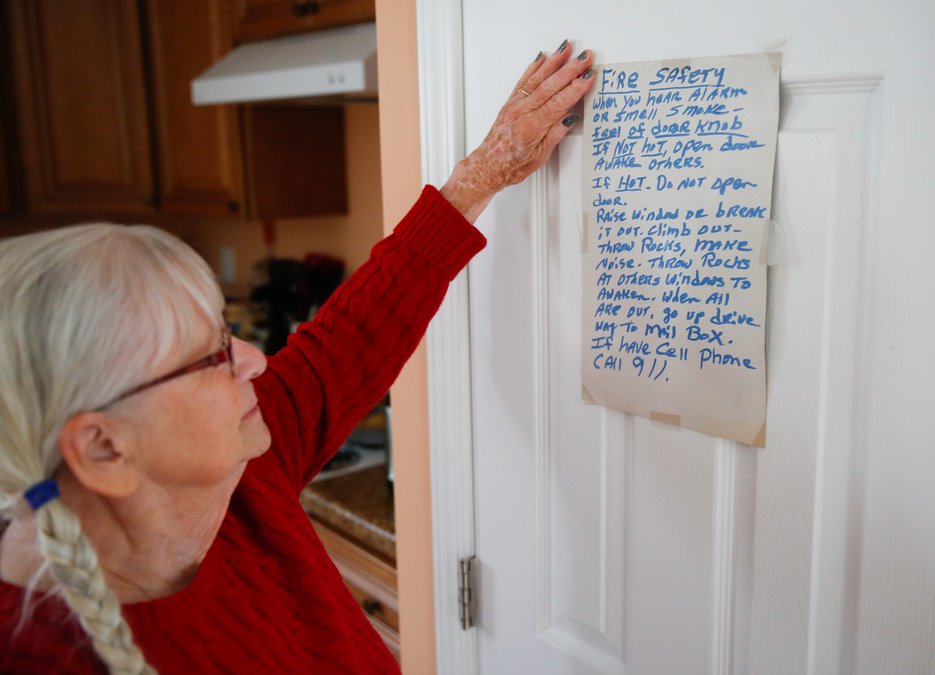 FIRE SAFETY
When you hear Alarm
or smell smoke -
feel of door knob
If Not hot, open door
Awake others.
If HOT - Do not open
door.
Raise window or break
it out. Climb out -
Throw Rocks, make
noise. Throw Rocks
at others windows to
awaken. When all
are out, go up drive
way to mail Box.
If have cell phone
Call 911.